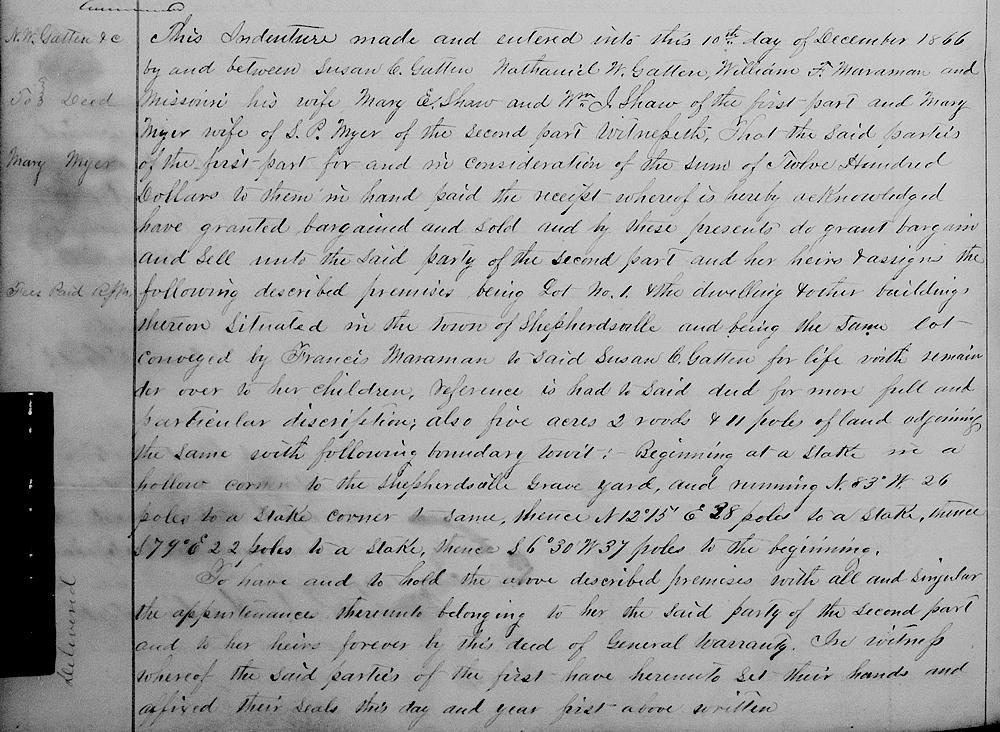 N. W. Gatten &c
To } Deed
Mary Myer
Fees Paid
Delivered
This Indenture made and entered into this 10th day of December 1866
by and between Susan C. Gatten Nathaniel W. Gatten, William F. Maraman and
Missouri his wife Mary E. Shaw and Wm J. Shaw of the first part and Mary
Myer wife of S. P. Myer of the second part Witnesseth, That the said parties
of the first part for and in consideration of the sum of Twelve Hundred
Dollars to them in hand paid the receipt whereof is hereby acknowledged
have granted bargained and sold and by these presents do grant bargain
and sell unto the said party of the second part and her heirs & assigns the
following described premises being Lot No. 1. & the dwelling & other buildings
thereon situated in the town of Shepherdsville and being the same lot
conveyed by Francis Maraman to said Susan C. Gatten for life with remain
der over to her children, reference is had to said deed for more full and
particular discription; also five acres 2 roods & 11 pole of land adjoining
the same with following boundary towit: - Beginning at a stake in a
hollow corner to the Shepherdsville Grave yard, and running N. 83° W. 26
poles to a stake corner to same, thence N 12°15 E 38 poles to a stake, thence
S 79° E 22 poles to a stake, thence S 6°30 W 37 poles to the beginning.
To have and to hold the above described premises with all and singular
the appurtenances thereunto belonging to her the said party of the second part
and to her heirs forever by this deed of General Warranty. In witness
whereof the said parties of the first have hereunto set their hands and
affixed their seals this day and year first above written